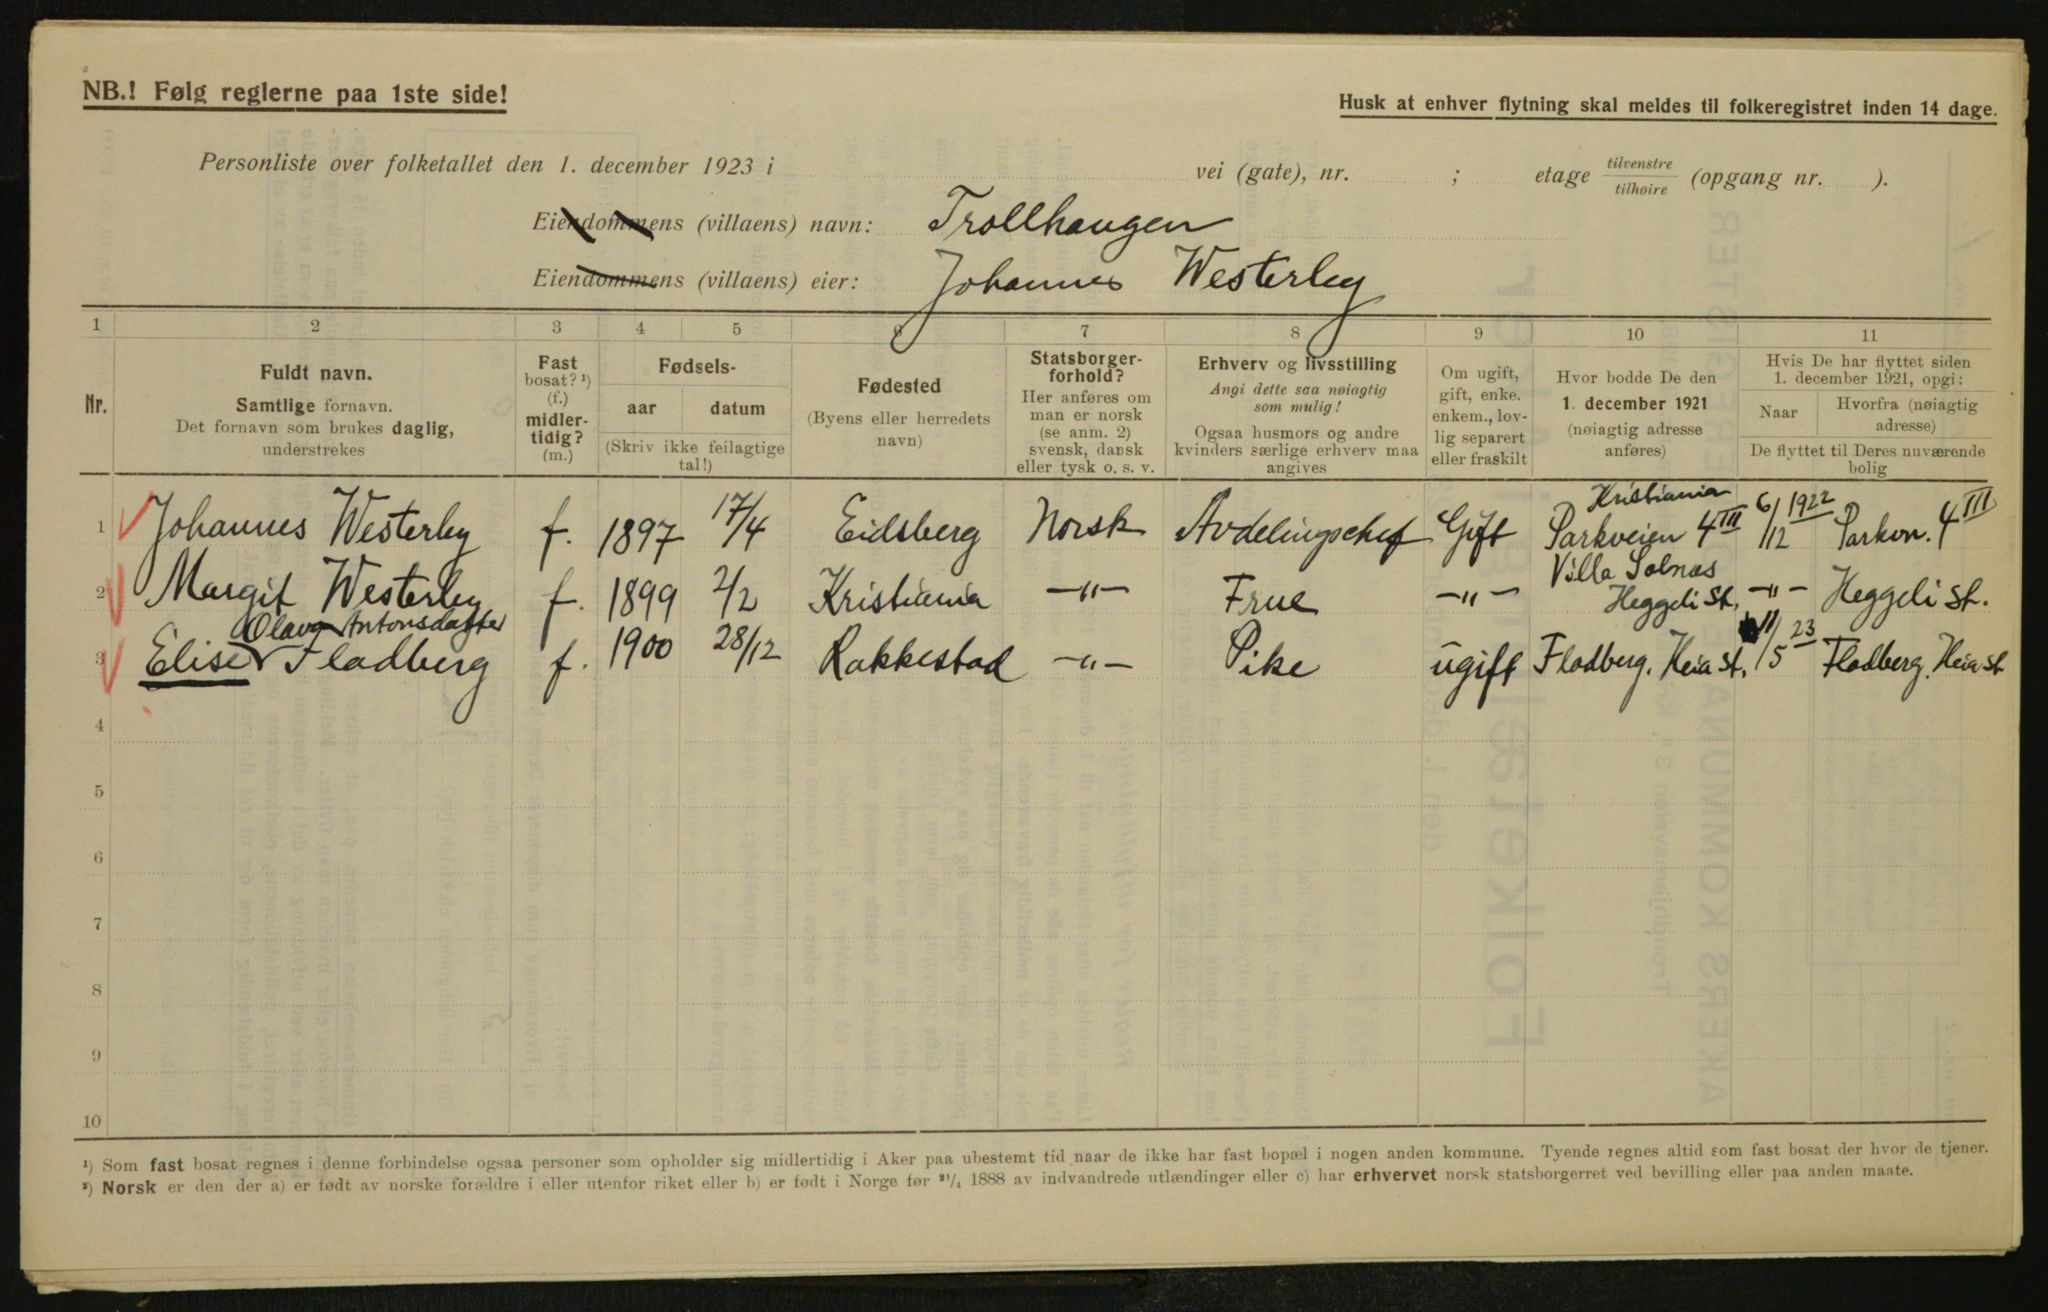 NB.! Følg reglerne paa 1ste side!
Husk at enhver flytning skal meldes til folkeregistret inden 14 dage.
Personliste over folketallet den 1. december 1923 i vei (gate), nr. ; etage tilvenstre tilhøire (opgang nr. ).
Eiendommens (villaens) navn: Trollhaugen
Eiendommens (villaens) eier: Johannes Westerby
1 2 3 4 5 6 7 8 9 10 11
Nr.
Fuldt navn.
Samtlige fornavn.
Det fornavn som brukes daglig,
understrekes
Fast
bosat? ¹)
(f.)
midler-
tidig?
(m.)
Fødsels-
aar datum
(Skriv ikke feilagtige
tal!)
Fødested
(Byens eller herredets
navn)
Statsborger-
forhold?
Her anføres om
man er norsk
(se anm. 2)
svensk, dansk
eller tysk o. s. v.
Erhverv og livsstilling
Angi dette saa nøiagtig
som mulig!
Ogsaa husmors og andre
kvinders særlige erhverv maa
angives
Om ugift,
gift, enke.
enkem., lov-
lig separert
eller fraskilt
Hvor bodde De den
1. december 1921
(nøiagtig adresse
anføres)
Hvis De har flyttet siden
1. december 1921, opgi:
Naar
Hvorfra (nøiagtig
adresse)
De flyttet til Deres nuværende
bolig
Kristiania
1 Johannes Westerby f. 1897 17/4 Eidsberg Norsk Avdelingschef Gift Parkveien 4 III 6/12 1922 Parkvn. 4 III
Villa Solnæs
2 Margit Westerby f. 1899 2/2 Kristiania —"— Frue —"— Heggeli St. —"— Heggeli St.
Olava Antonsdatter
3 Elise Fladberg f. 1900 28/12 Rakkestad —"— Pike ugift Fladberg. Heia st. 11/5 23 Fladberg. Heia st
4
5
6
7
8
9
10
¹) Som fast bosat regnes i denne forbindelse ogsaa personer som opholder sig midlertidig i Aker paa ubestemt tid naar de ikke har fast bopæl i nogen anden kommune. Tyende regnes altid som fast bosat der hvor de tjener.
²) Norsk er den der a) er født av norske forældre i eller utenfor riket eller b) er født i Norge før ²¹/₄ 1888 av indvandrede utlændinger eller c) har erhvervet norsk statsborgerret ved bevilling eller paa anden maate.